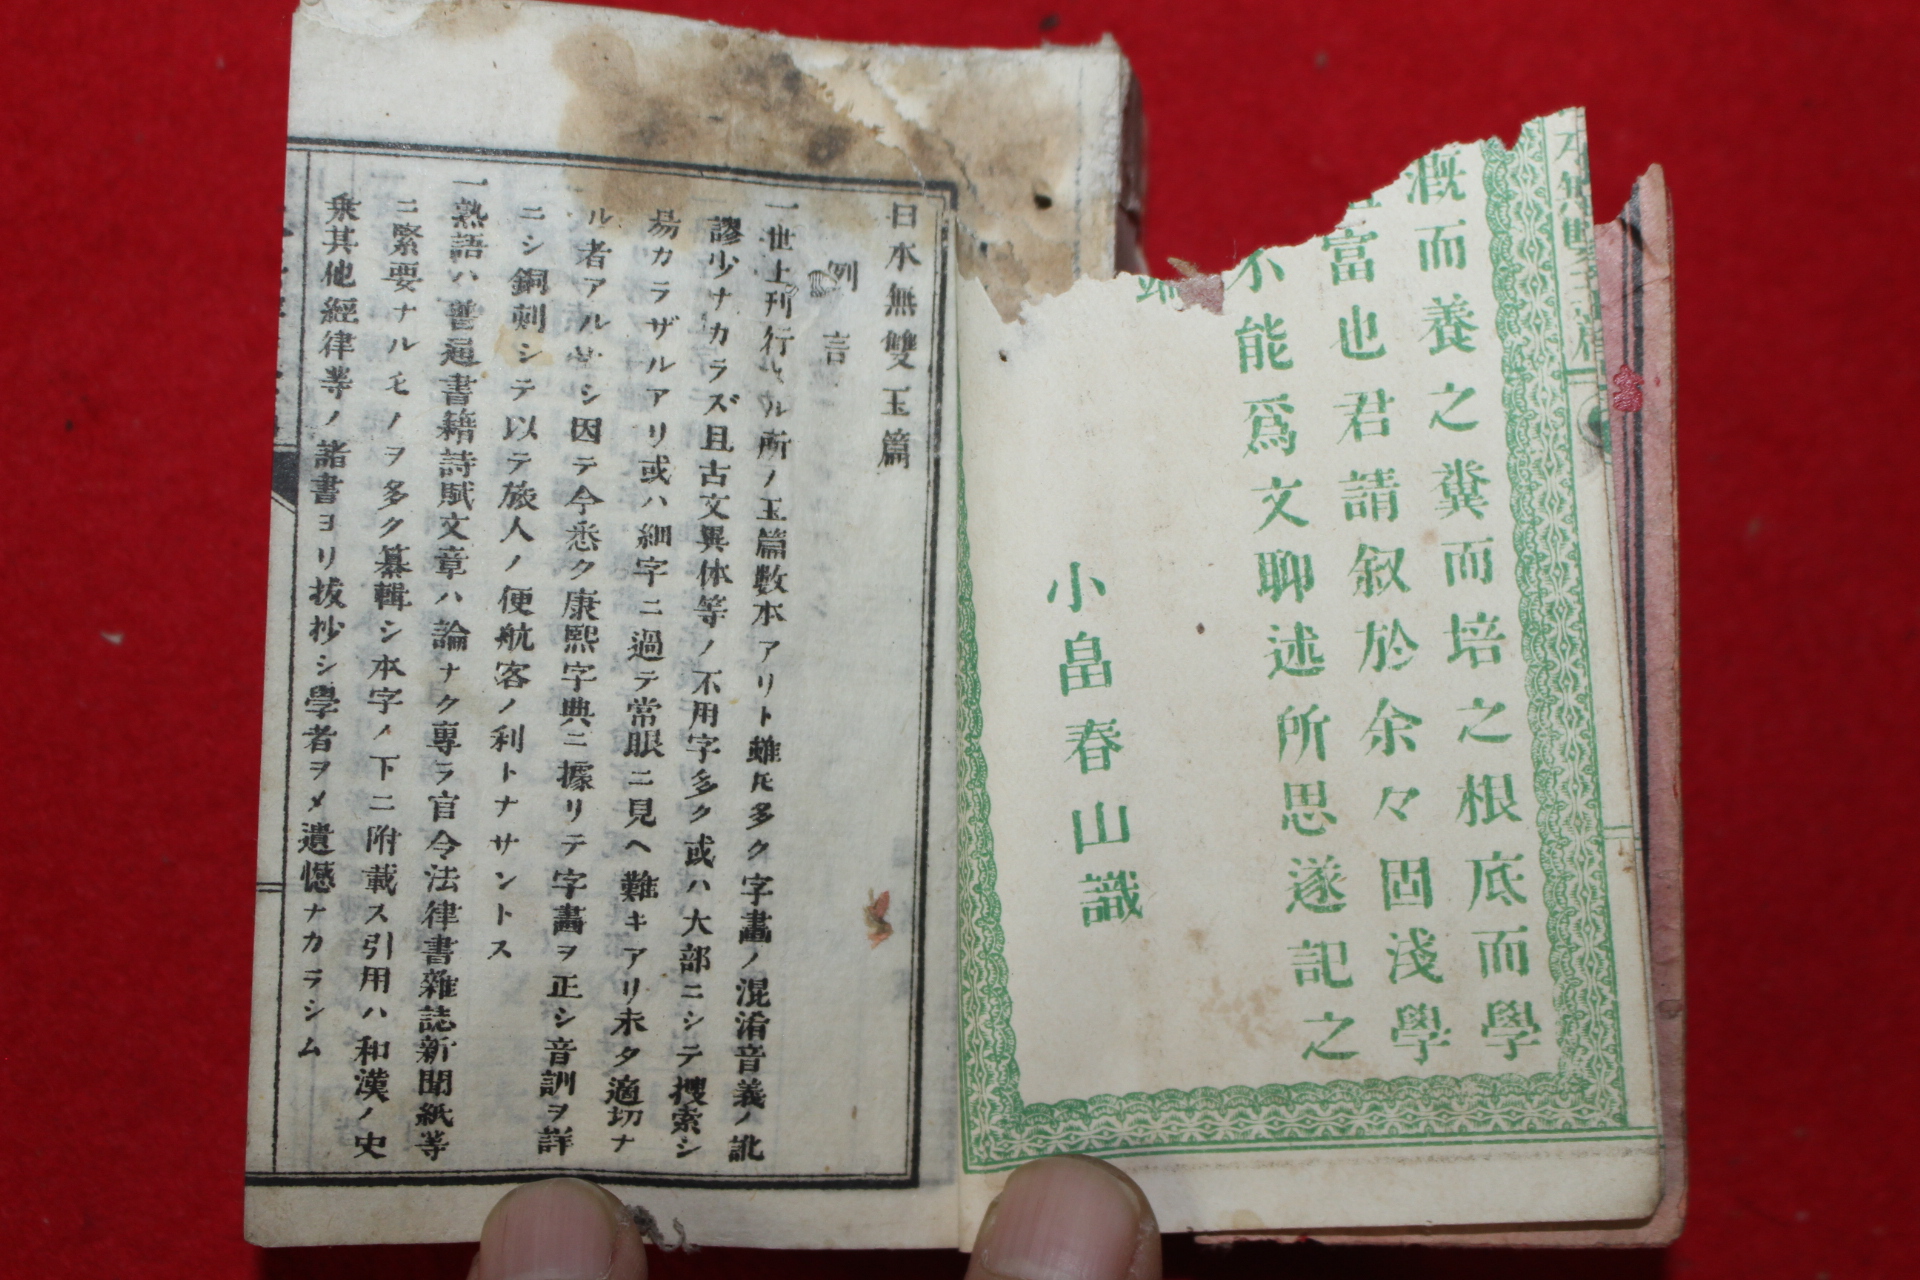 漑而養之糞而培之根底而學
富也君請叙於余々固淺學
不能爲文聊述所思遂記之
端
小畠春山識
日本無雙玉篇
例言
一世上刊行スル所ノ玉篇數本アリト雖𪜈多ク字畫ノ混淆音義ノ訛
謬少ナカラズ且古文異体等ノ不用字多ク或ハ大部ニシテ搜索シ
易カラザルアリ或ハ細字ニ過テ常眼ニ見ヘ難キアリ未タ適切ナ
ル者アルナシ因テ今悉ク康熙字典ニ據リテ字畫ヲ正シ音訓ヲ詳
ニシ銅刻シテ以テ旅人ノ便航客ノ利トナサントス
一熟語ハ普通書籍詩賦文章ハ論ナク專ラ官令法律書雜誌新聞紙等
ニ緊要ナルモノヲ多ク纂輯シ本字ノ下ニ附載ス引用ハ和漢ノ史
乘其他經律等ノ諸書ヨリ拔抄シ學者ヲメ遺憾ナカラシム